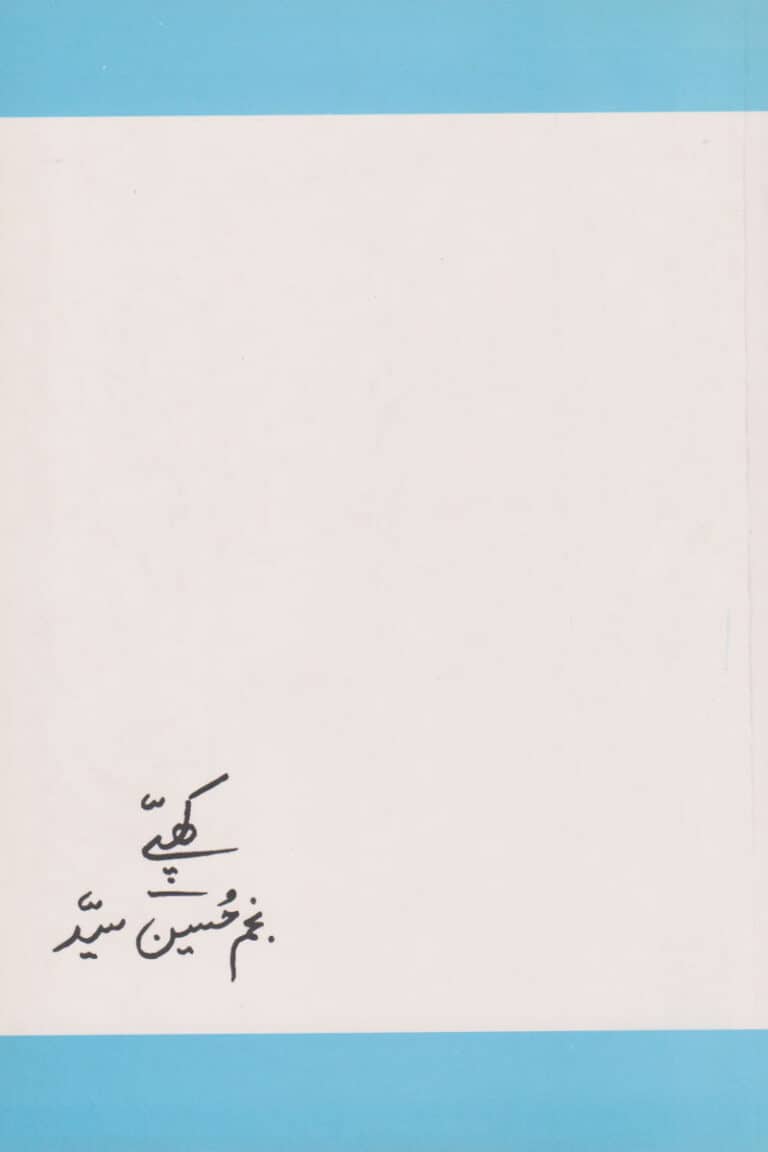 کھپّے
نجم حُسین سیّد